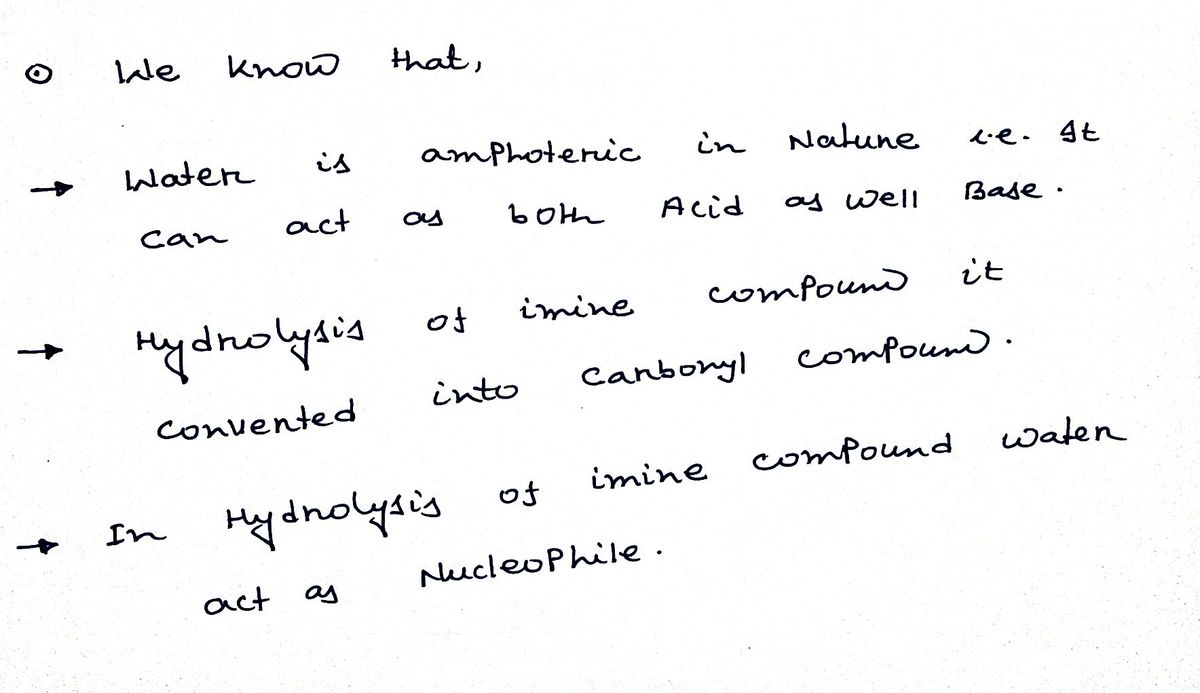 ⊙ We know that,
→ Water is amphoteric in Nature i.e. It
can act as both Acid as well Base.
→ Hydrolysis of imine compound it
converted into carbonyl compound.
→ In Hydrolysis of imine compound water
act as Nucleophile.